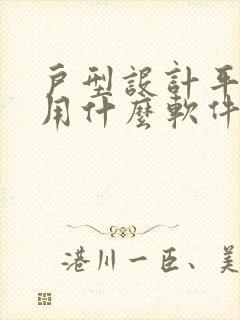 戶型設計平
用什麼軟件
港川一臣、美